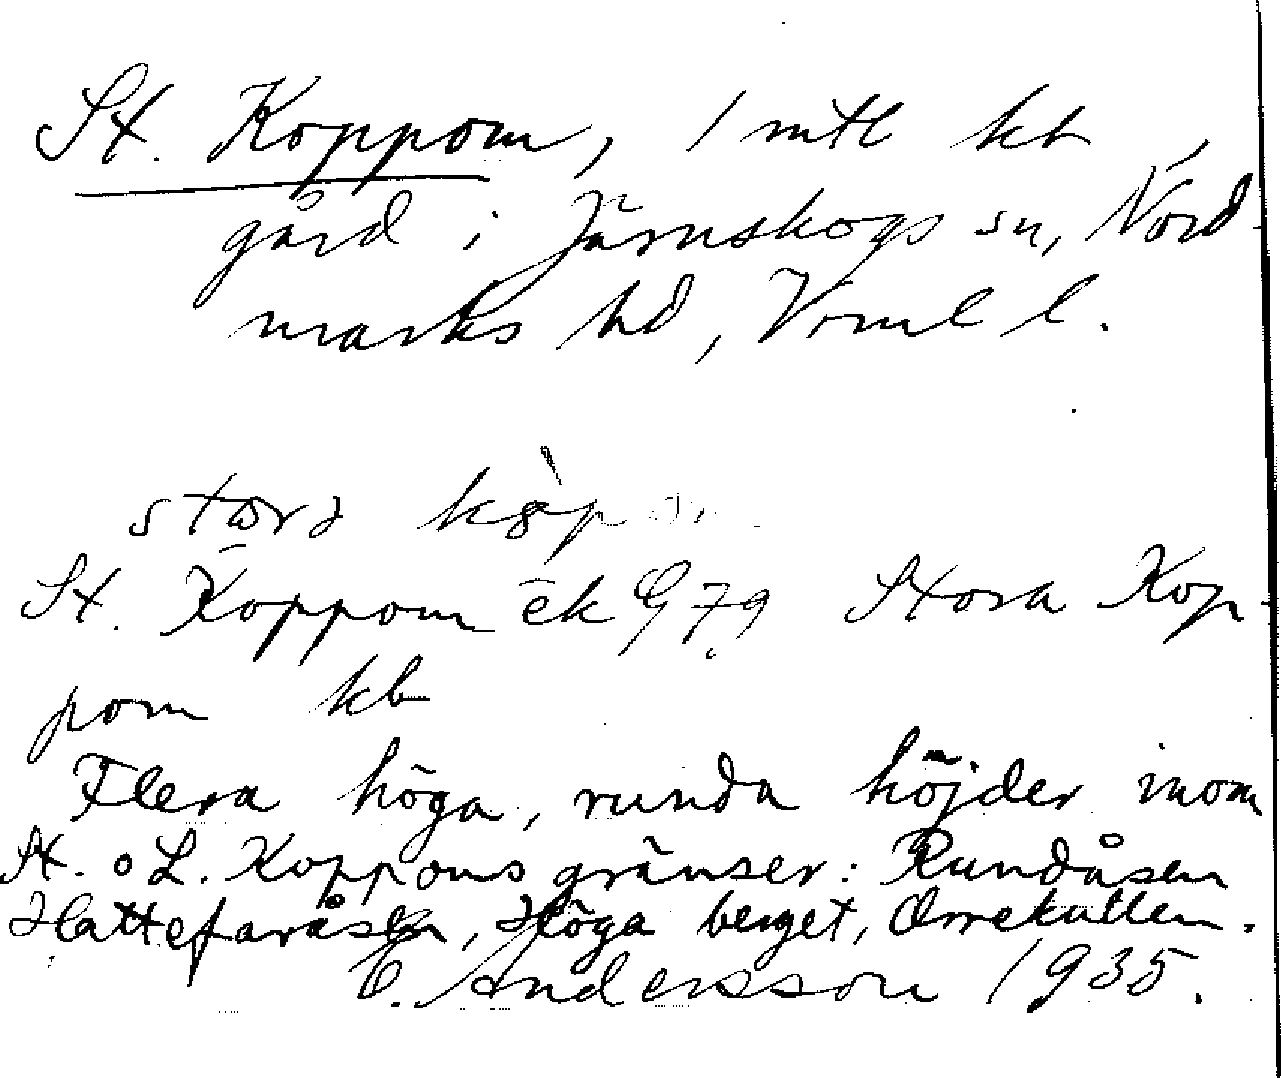 St. Koppom, 1 mtl kb
gård i Järnskogs sn, Nord-
marks hd, Värml l.
stora
St. Koppom ek G 79 Stora Kop-
pom kb
Flera höga, runda höjder inom
St. o L. Koppoms gränser: Rundåsen
Hattefaråsen, Höga berget, Orrekullen.
E. Andersson 1935.